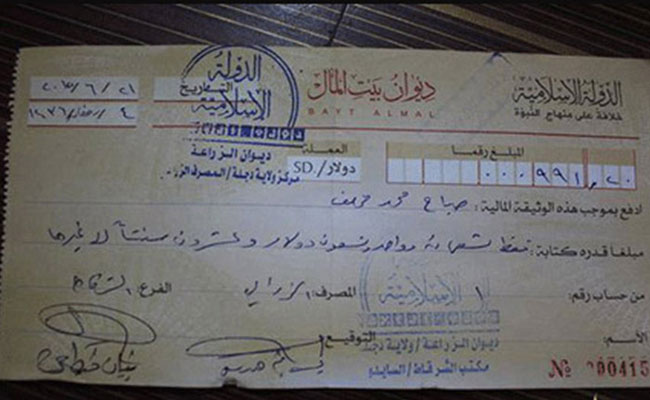 الدولة الإسلامية
خلافة على منهاج النبوة
ديوان بيت المال
BAYT ALMAL
الدولة
الإسلامية
ديوان الزراعة
مركز ولاية دجلة / المصرف
التاريخ
٢١ / ٦ /
٤ / رمضان /
المبلغ رقما
٠٠٠٩٩١,٢٠
العملة
دولار / SD.
ادفع بموجب هذه الوثيقة المالية: صباح محمد
مبلغا قدره كتابة: فقط تسعمائة وواحد وتسعون دولار وعشرون سنتاً لا غيرها
من حساب رقم: ١ المصرف: الفرع: الشرقاط
الإسلامية
ديوان الزراعة / ولاية دجلة
مكتب الشرقاط / السايلو
الأسم:
التوقيع
№ 000415